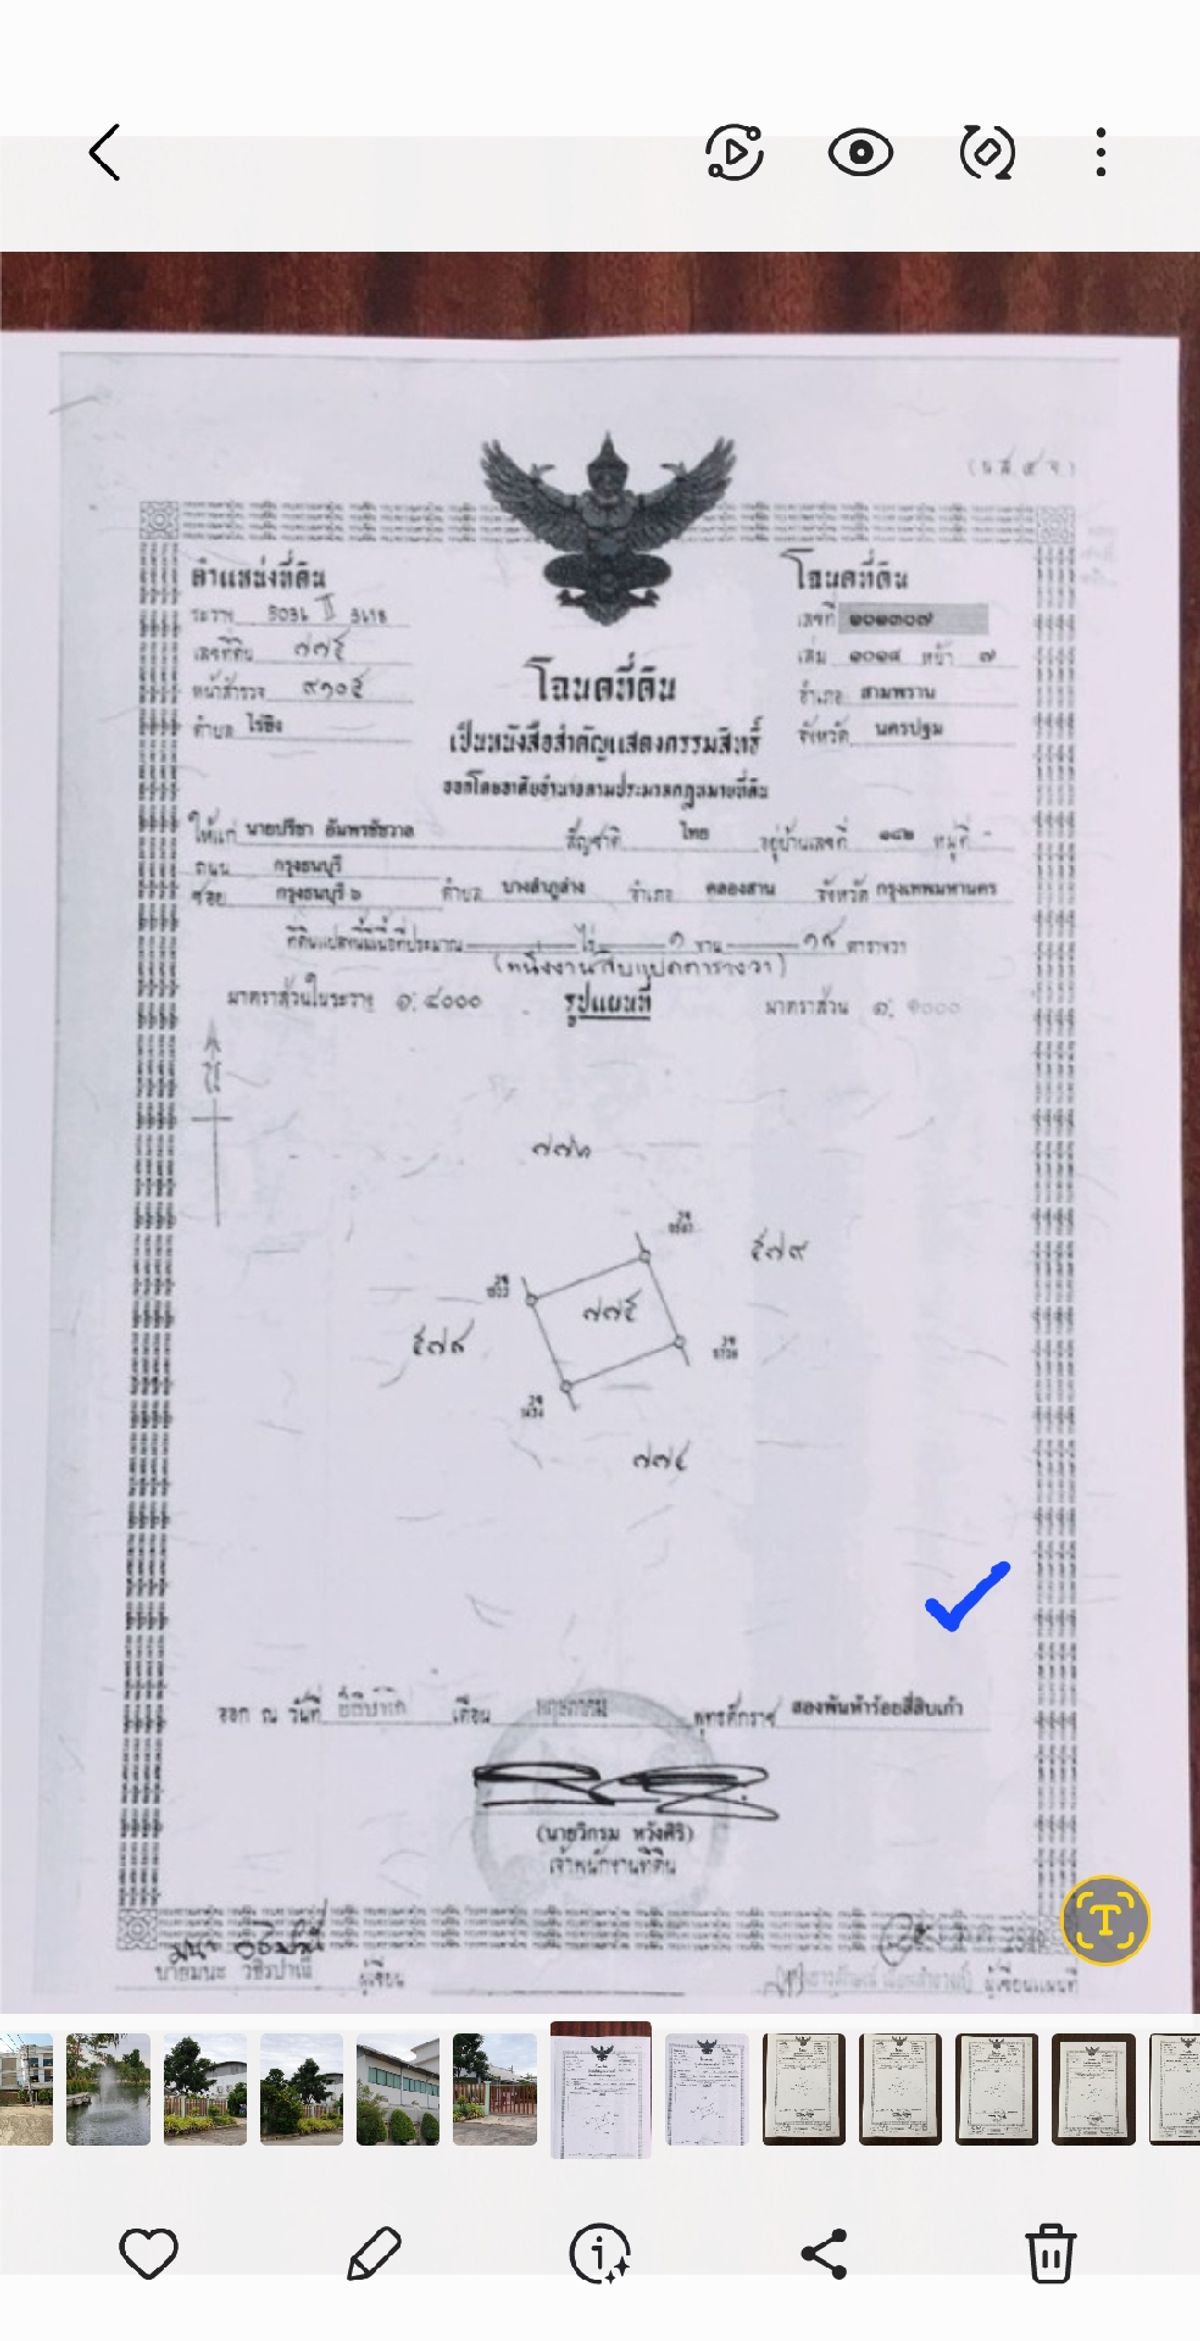 (น.ส. ๔ จ.)
ตำแหน่งที่ดิน
โฉนดที่ดิน
ระวาง 5036 II
เลขที่ ๑๐๑๓๐๗
เลขที่ดิน ๗๗๕
เล่ม ๑๐๑๔ หน้า ๗
หน้าสำรวจ ๙๑๐๕
อำเภอ สามพราน
ตำบล ไร่ขิง
จังหวัด นครปฐม
โฉนดที่ดิน
เป็นหนังสือสำคัญแสดงกรรมสิทธิ์
ออกโดยอาศัยอำนาจตามประมวลกฎหมายที่ดิน
ให้แก่ นายปรีชา อัมพรชัชวาล สัญชาติ ไทย อยู่บ้านเลขที่ หมู่ที่ -
ถนน กรุงธนบุรี
ซอย กรุงธนบุรี ๖ ตำบล บางลำภูล่าง อำเภอ คลองสาน จังหวัด กรุงเทพมหานคร
ที่ดินแปลงนี้มีเนื้อที่ประมาณ ไร่ ๑ งาน ๑๘ ตารางวา
(หนึ่งงานสิบแปดตารางวา)
มาตราส่วนในระวาง ๑:๔๐๐๐ รูปแผนที่ มาตราส่วน ๑:๑๐๐๐
๗๗๖
๕๗๙
๗๗๕
๕๗๘
๗๗๔
ออก ณ วันที่ เดือน พฤษภาคม พุทธศักราช สองพันห้าร้อยสี่สิบเก้า
(นายวิกรม หวังศิริ)
เจ้าพนักงานที่ดิน
นายมนะ วชิรปาณี ผู้เขียน
ผู้เขียนแผนที่